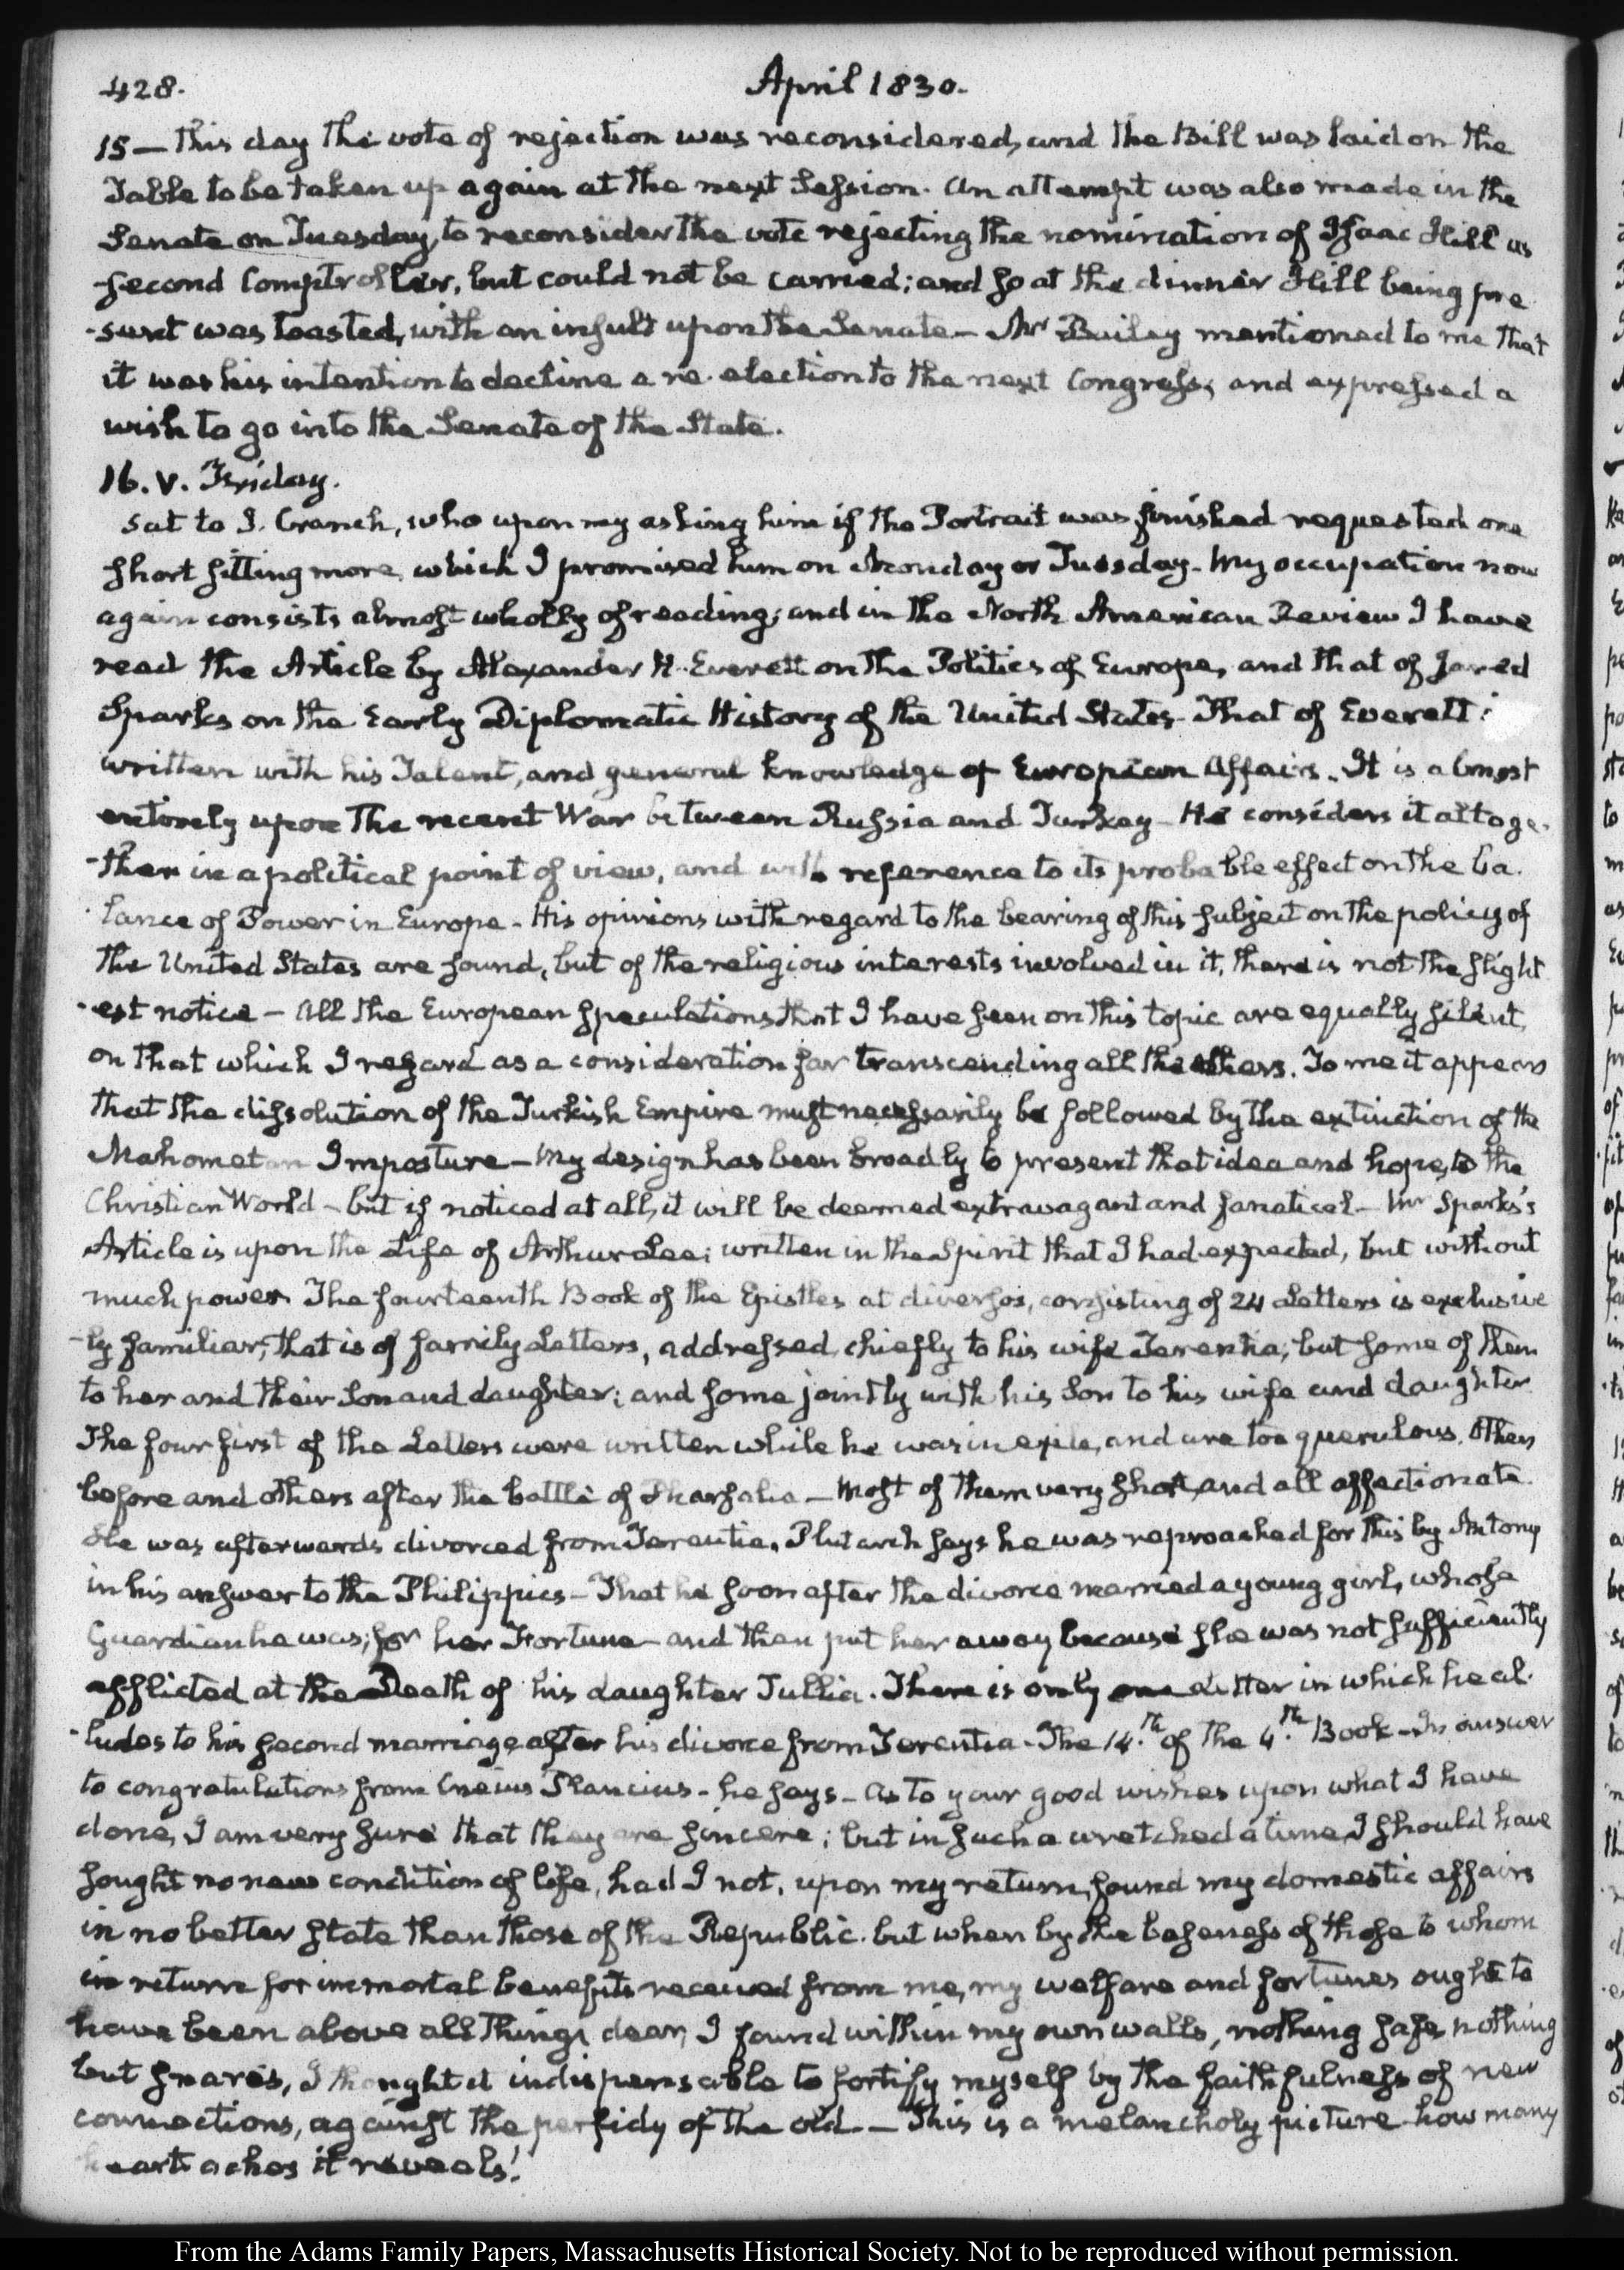 428.
April 1830.
15 — this day the vote of rejection was reconsidered, and the Bill was laid on the
Table to be taken up again at the next Session. An attempt was also made in the
Senate on Tuesday, to reconsider the vote rejecting the nomination of Isaac Hill as
second Comptroller, but could not be carried; and so at the dinner Hill being pre
-sent was toasted, with an insult upon the Senate — Mr Bailey mentioned to me that
it was his intention to decline a re-election to the next Congress, and expressed a
wish to go into the Senate of the State.
16. V. Friday.
Sat to J. Cranch, who upon my asking him if the Portrait was finished requested one
short sitting more, which I promised him on Monday or Tuesday. My occupation now
again consists almost wholly of reading; and in the North American Review I have
read the Article by Alexander H. Everett on the Politics of Europe, and that of Jared
Sparks on the Early Diplomatic History of the United States. That of Everett
written with his Talent, and general knowledge of European Affairs. It is almost
entirely upon the recent War between Russia and Turkey — He considers it altoge-
-ther in a political point of view, and with reference to its probable effect on the ba-
-lance of Power in Europe. His opinions with regard to the bearing of this subject on the policy of
the United States are sound, but of the religious interests involved in it, there is not the slight
-est notice — All the European speculations that I have seen on this topic are equally silent
on that which I regard as a consideration far transcending all the others. To me it appears
that the dissolution of the Turkish Empire must necessarily be followed by the extinction of the
Mahometan Imposture — My design has been broadly to present that idea and hope, to the
Christian World — but if noticed at all, it will be deemed extravagant and fanatical — Mr Sparks's
Article is upon the Life of Arthur Lee; written in the Spirit that I had expected, but without
much power. The fourteenth Book of the Epistles at diversos, consisting of 24 Letters is exclusive
-ly familiar, that is of family Letters, addressed chiefly to his wife Terentia; but some of them
to her and their Son and daughter; and some jointly with his Son to his wife and daughter
The four first of the Letters were written while he was in exile, and are too querulous. Others
before and others after the battle of Pharsalia — Most of them very short, and all affectionate.
He was afterwards divorced from Terentia. Plutarch says he was reproached for this by Antony
in his answer to the Philippics — That he soon after the divorce married a young girl, whose
Guardian he was, for her Fortune — and then put her away because she was not sufficiently
afflicted at the Death of his daughter Tullia. There is only one Letter in which he al-
-ludes to his second marriage after his divorce from Terentia — The 14.th of the 4.th Book — In answer
to congratulations from Cneius Plancius — he says — As to your good wishes upon what I have
done, I am very sure that they are sincere; but in such a wretched a time, I should have
sought no new condition of life, had I not, upon my return, found my domestic affairs
in no better state than those of the Republic. but when by the baseness of those to whom
in return for immortal benefits received from me, my welfare and fortunes ought to
have been above all things dear, I found within my own walls, nothing safe, nothing
but snares, I thought it indispensable to fortify myself by the faithfulness of new
connections, against the perfidy of the old — This is a melancholy picture how many
heart aches it reveals!
From the Adams Family Papers, Massachusetts Historical Society. Not to be reproduced without permission.